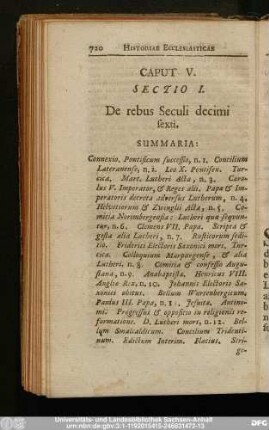 720 HISTORIAE ECCLESIASTICAE
CAPUT V.
SECTIO I.
De rebus Seculi decimi
sexti.
SUMMARIA:
Connexio. Pontificum successio, n. 1. Concilium
Lateranense, n. 2. Leo X. Pontifex. Tur-
cica. Mart. Lutheri Acta, n. 3. Caro-
lus V. Imperator, & Reges alii. Papæ & Im-
peratoris decreta adversus Lutherum, n. 4.
Helvetiorum & Zwinglii Acta, n. 5. Co-
mitia Norimbergensia: Lutheri quæ sequun-
tur, n. 6. Clemens VII. Papa. Scripta &
gesta alia Lutheri, n. 7. Rusticorum seditio.
Friderici Electoris Saxonici mors. Tur-
cica. Colloquium Marpurgense, & alia
Lutheri, n. 8. Comitia & confessio Augu-
stana, n. 9. Anabaptistæ. Henricus VIII.
Angliæ Rex, n. 10. Johannis Electoris Sa-
xonici obitus. Bellum Würtenbergicum.
Paulus III. Papa, n. 11. Jesuitæ. Antino-
mi. Progressus & oppositio in religionis re-
formatione. D. Lutheri mors, n. 12. Bel-
lum Smalcaldicum. Concilium Tridenti-
num. Edictum Interim. Flacius. Scri-
pt-
Universitäts- und Landesbibliothek Sachsen-Anhalt
DFG